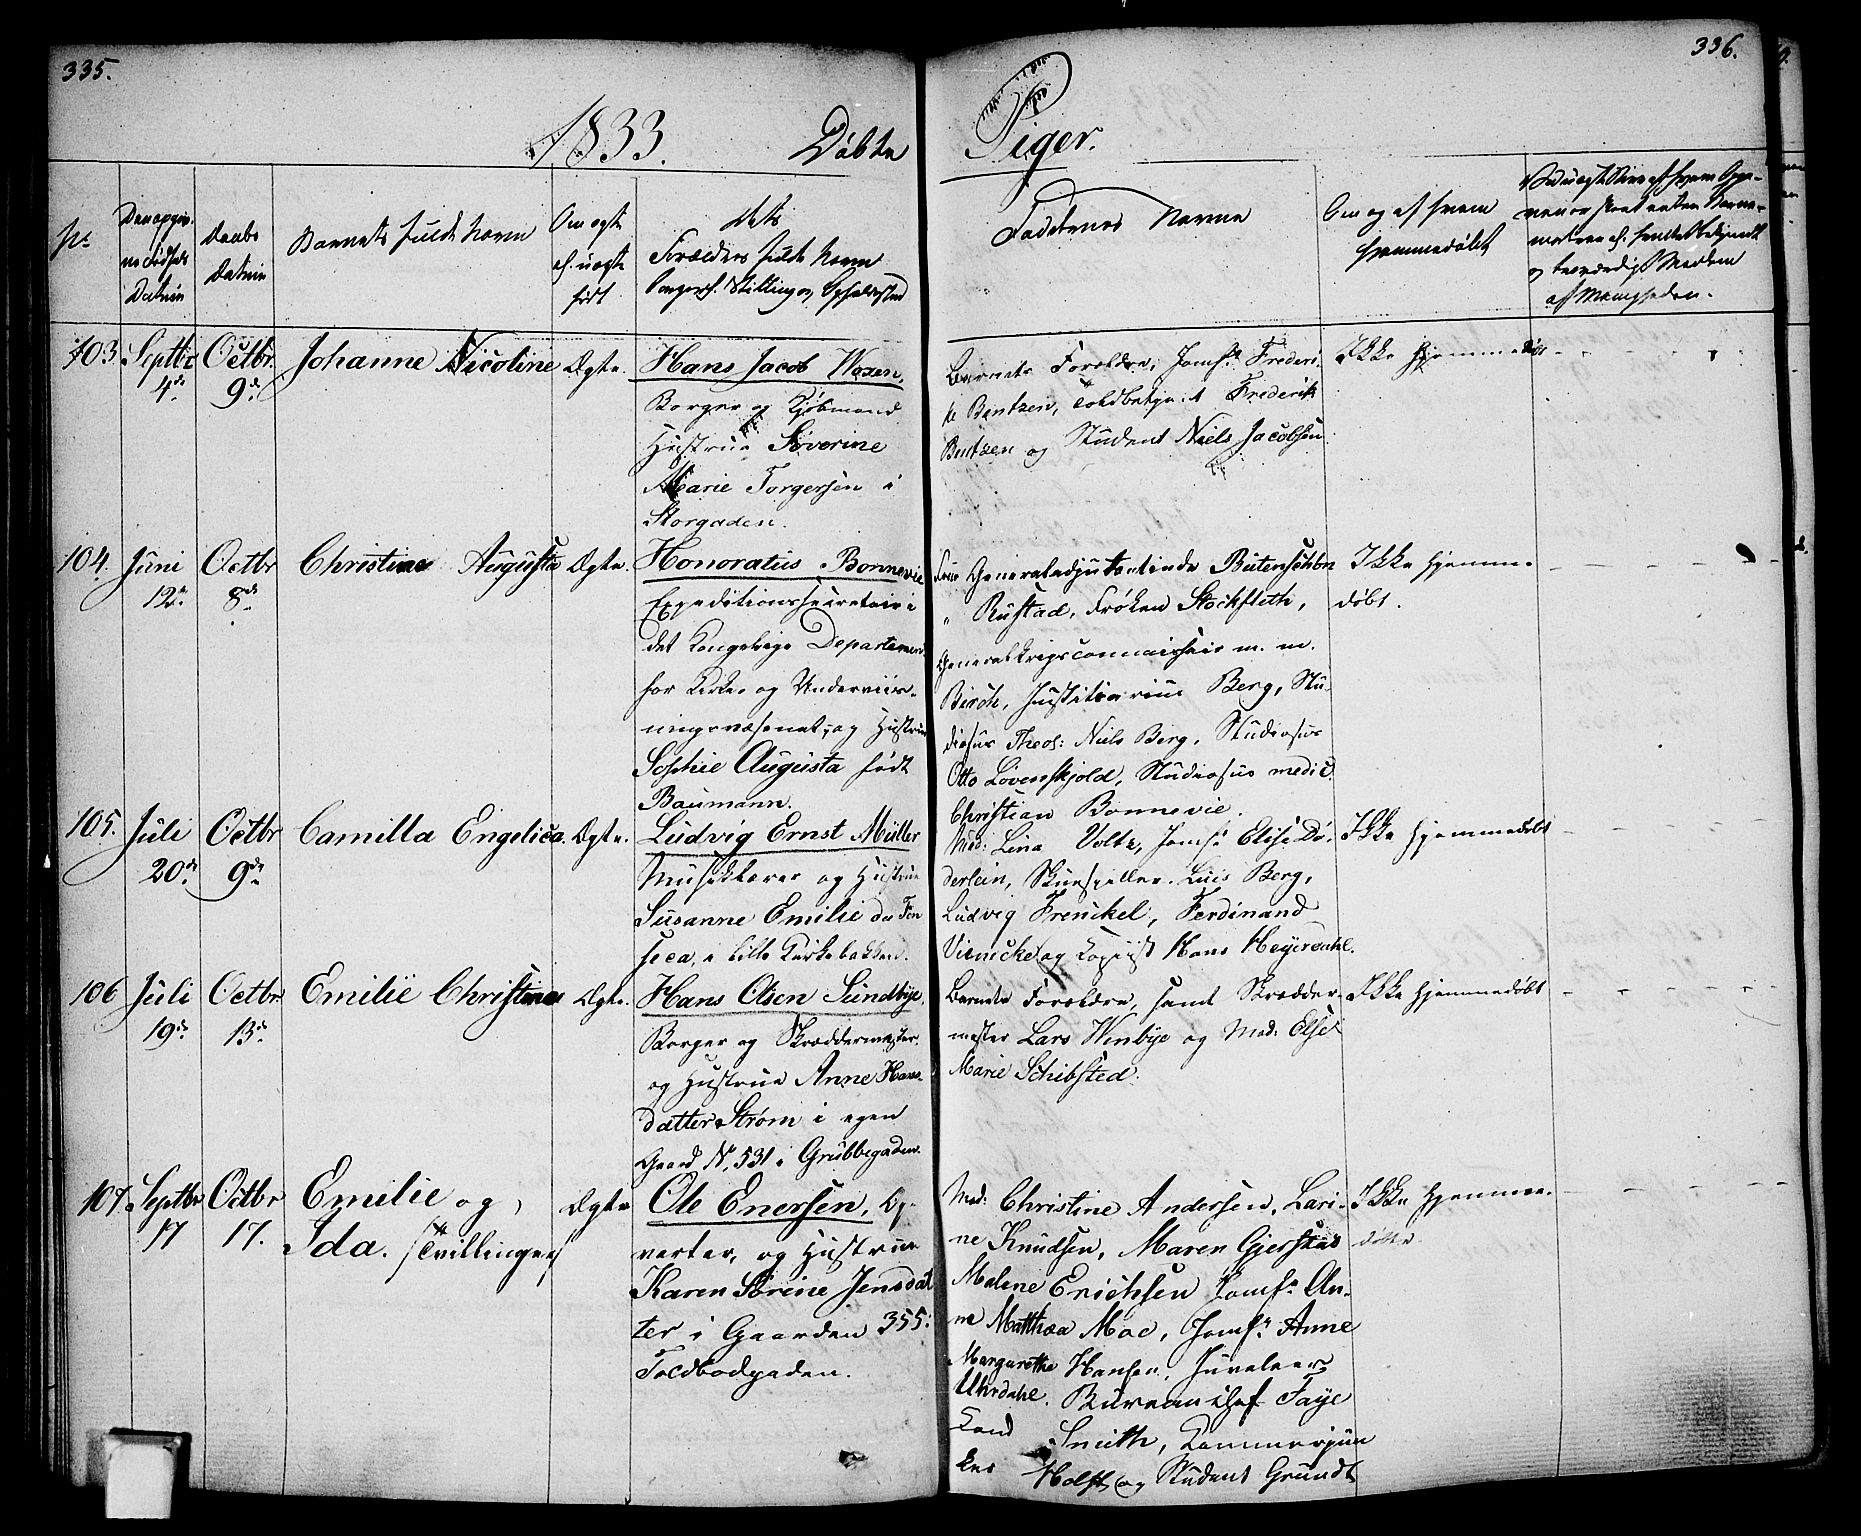 335.
336.
1833.
Døbte
Piger.
No
Den opgiv-
ne Fødsels
Datum
Daabs
Datum
Barnets fulde Navn
Om ægte
el. uægte
født
Dets
Forældres fulde Navn
Borgerl. Stilling og Opholdssted
Faddernes Navne
Om og af hvem
hjemmedøbt
af Menigheden.
103.
Septbr
4de
Octbr
9de
Johanne Nicoline
Ægte.
Hans Jacob Waxen,
Borger og Kjøbmand
Hustrue Severine
Marie Torgersen i
Storgaden.
Barnets Forældre, Jomfr Frederi-
ke Bentzen, Toldbetjent Frederik
Bentzen og Student Niels Jacobsen
Ikke hjemmedøbt
104.
Juni
12te
Octbr
8de
Christine Augusta
Ægte.
Honoratus Bonnevie
Expeditionssecretair i
det Kongelige Departement
for Kirke og Underviis-
ningsvæsenet, og Hustrue
Sophie Augusta født
Baumann.
Frue Generaladjutantinde Butenschön
" Rustad, Frøken Stockfleth,
Generalkrigscommissair m. m.
Birch, Justitiarius Berg, Stu-
diosus Theol: Niels Berg, Studiosus
Otto Løvenskjold, Studiosus medic
Christian Bonnevie.
Ikke hjemme-
døbt.
105.
Juli
20de
Octbr
9de
Camilla Engelica.
Ægte.
Ludvig Ernst Müller
Musiklærer og Hustrue
Susanne Emilie da Fon
seca, i lille Kirkebakken.
Mad: Lina Voltz, Jomfr Elise Dö-
derlein, Skuespiller Luis Berg,
Ludvig Frenckel, Ferdinand
Vienicke og Copiist Hans Heyerdahl.
Ikke hjemmedøbt
106
Juli
19de
Octbr
13de
Emilie Christine
Ægte.
Hans Olsen Sundbye,
Borger og Skræddermester,
og Hustrue Anne Hans-
datter Strøm i egen
Gaard No 531 i Grubbegaden.
Barnets Forældre, samt Skrædder-
mester Lars Winbye og Mad: Else
Marie Schibsted.
Ikke hjemmedøbt
107.
Septbr
17
Octbr
17.
Emilie og
Ida. /Tvillinger/
Ægte
Ole Enersen, Op-
varter, og Hustrue
Karen Sørine Jensdat
ter i Gaarden 355:
Toldbodgaden.
Mad: Christine Andersen, Lari-
ne Knudsen, Maren Gjerstad
Malene Erichsen Jomfr An-
ne Matthea Moe, Jomfr Anne
Margarethe Hansen, Juveleer
Uhrdahl. Bureauchef Faye
Smith, Kammerjun
ker Holst, og Student Grundt
Ikke hjemme-
døbte